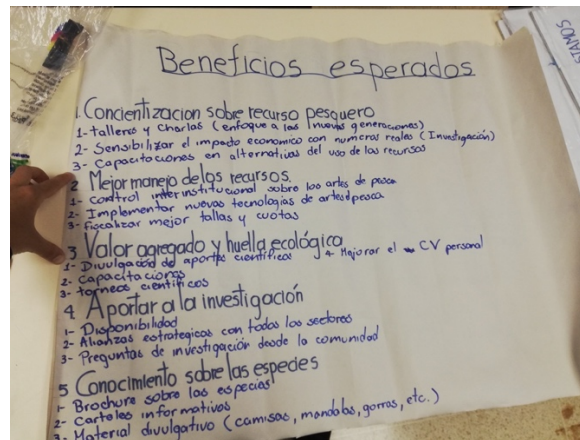 Beneficios esperados
1. Concientizacion sobre recurso pesquero
1- talleres y charlas (enfoque a las nuevas generaciones)
2- Sensibilizar el impacto economico con numeros reales (Investigación)
3- Capacitaciones en alternativas del uso de los recursos
2 Mejor manejo de los recursos.
1- Control interinstitucional sobre las artes de pesca
2- Implementar nuevas tecnologías de artes d pesca
3- fiscalizar mejor tallas y cuotas
3 Valor agregado y huella ecológica
1- Divulgación de aportes científicos 4- Mejorar el CV personal
2- Capacitaciones
3- torneos científicos
4 Aportar a la investigación
1- Disponibilidad
2- Alianzas estrategicas con todos los sectores
3- Preguntas de investigación desde la comunidad
5 Conocimiento sobre las especies
1- Brochure sobre las especies
2- Carteles informativos
3- Material divulgativo (camisas, mandalas, gorras, etc.)
STAMOS